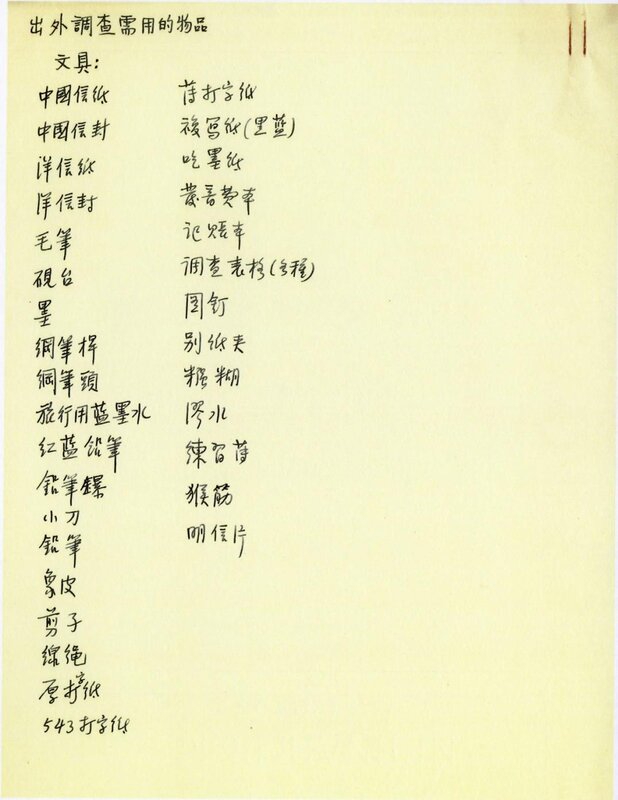 出外調查需用的物品
文具:
中國信紙
中國信封
洋信紙
洋信封
毛筆
硯台
墨
鋼筆桿
鋼筆頭
旅行用蓝墨水
红蓝鉛筆
鉛筆鏍
小刀
鉛筆
象皮
剪子
線绳
厚打字紙
543打字紙
薄打字紙
複写紙(黑蓝)
吃墨纸
記賬本
調查表格(各種)
图釘
别紙夹
糨糊
膠水
練習薄
猴筋
明信片